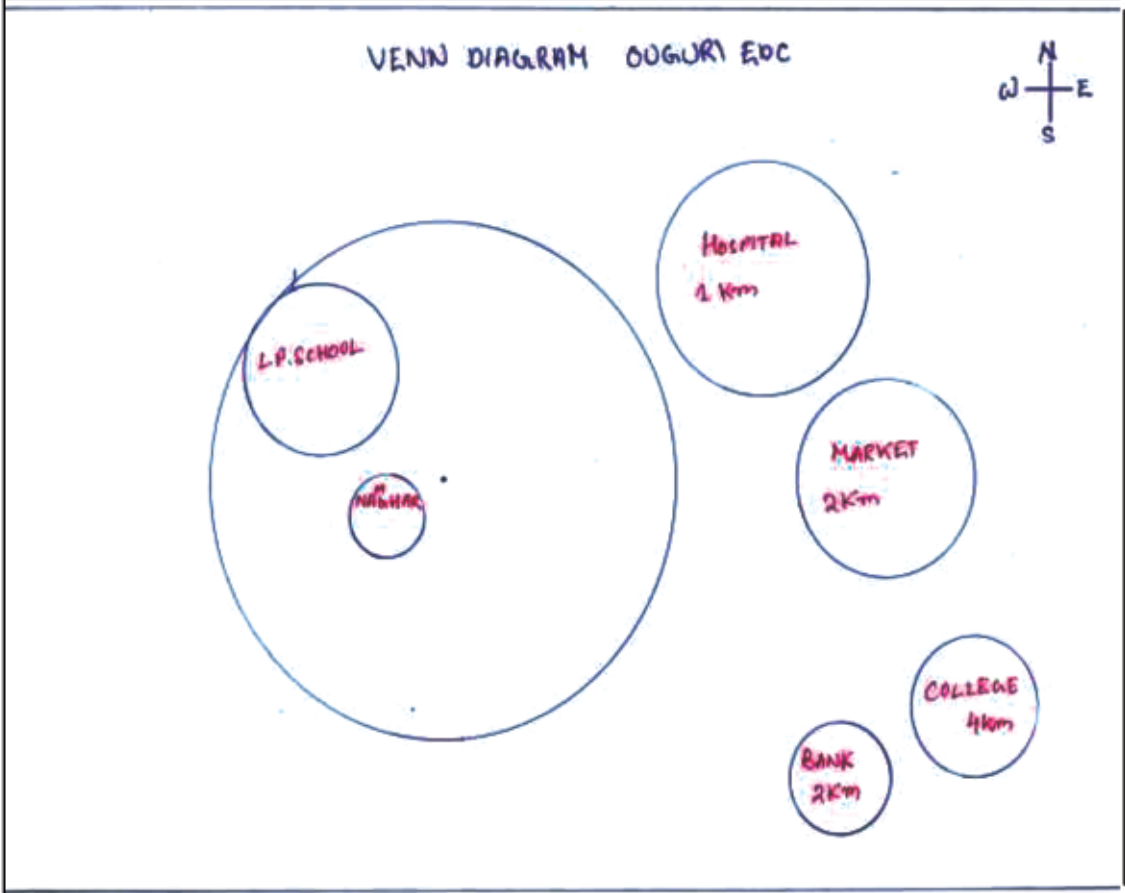 VENN DIAGRAM OUGURI EDC
N
W E
S
HOSPITAL
1 Km
L.P. SCHOOL
MARKET
2Km
COLLEGE
4km
BANK
2Km